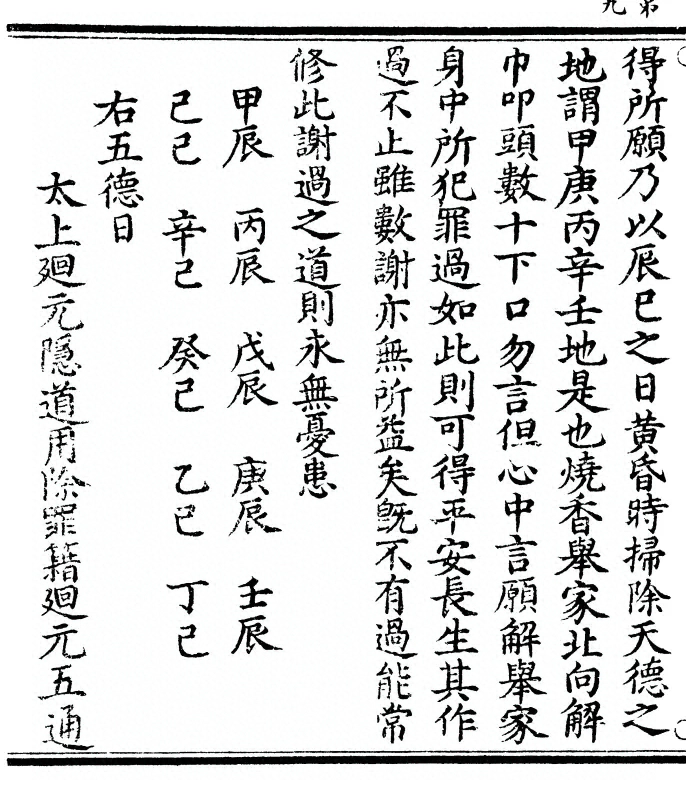 第九
得所願乃以辰巳之日黄昏時掃除天德之
地謂甲庚丙辛壬地是也燒香舉家北向解
巾叩頭數十下口勿言但心中言願解舉家
身中所犯罪過如此則可得平安長生其作
過不止雖數謝亦無所益矣既不有過能常
修此謝過之道則永無憂患
甲辰 丙辰 戊辰 庚辰 壬辰
己巳 辛巳 癸巳 乙巳 丁巳
右五德日
太上廻元隱道用除罪籍廻元五通